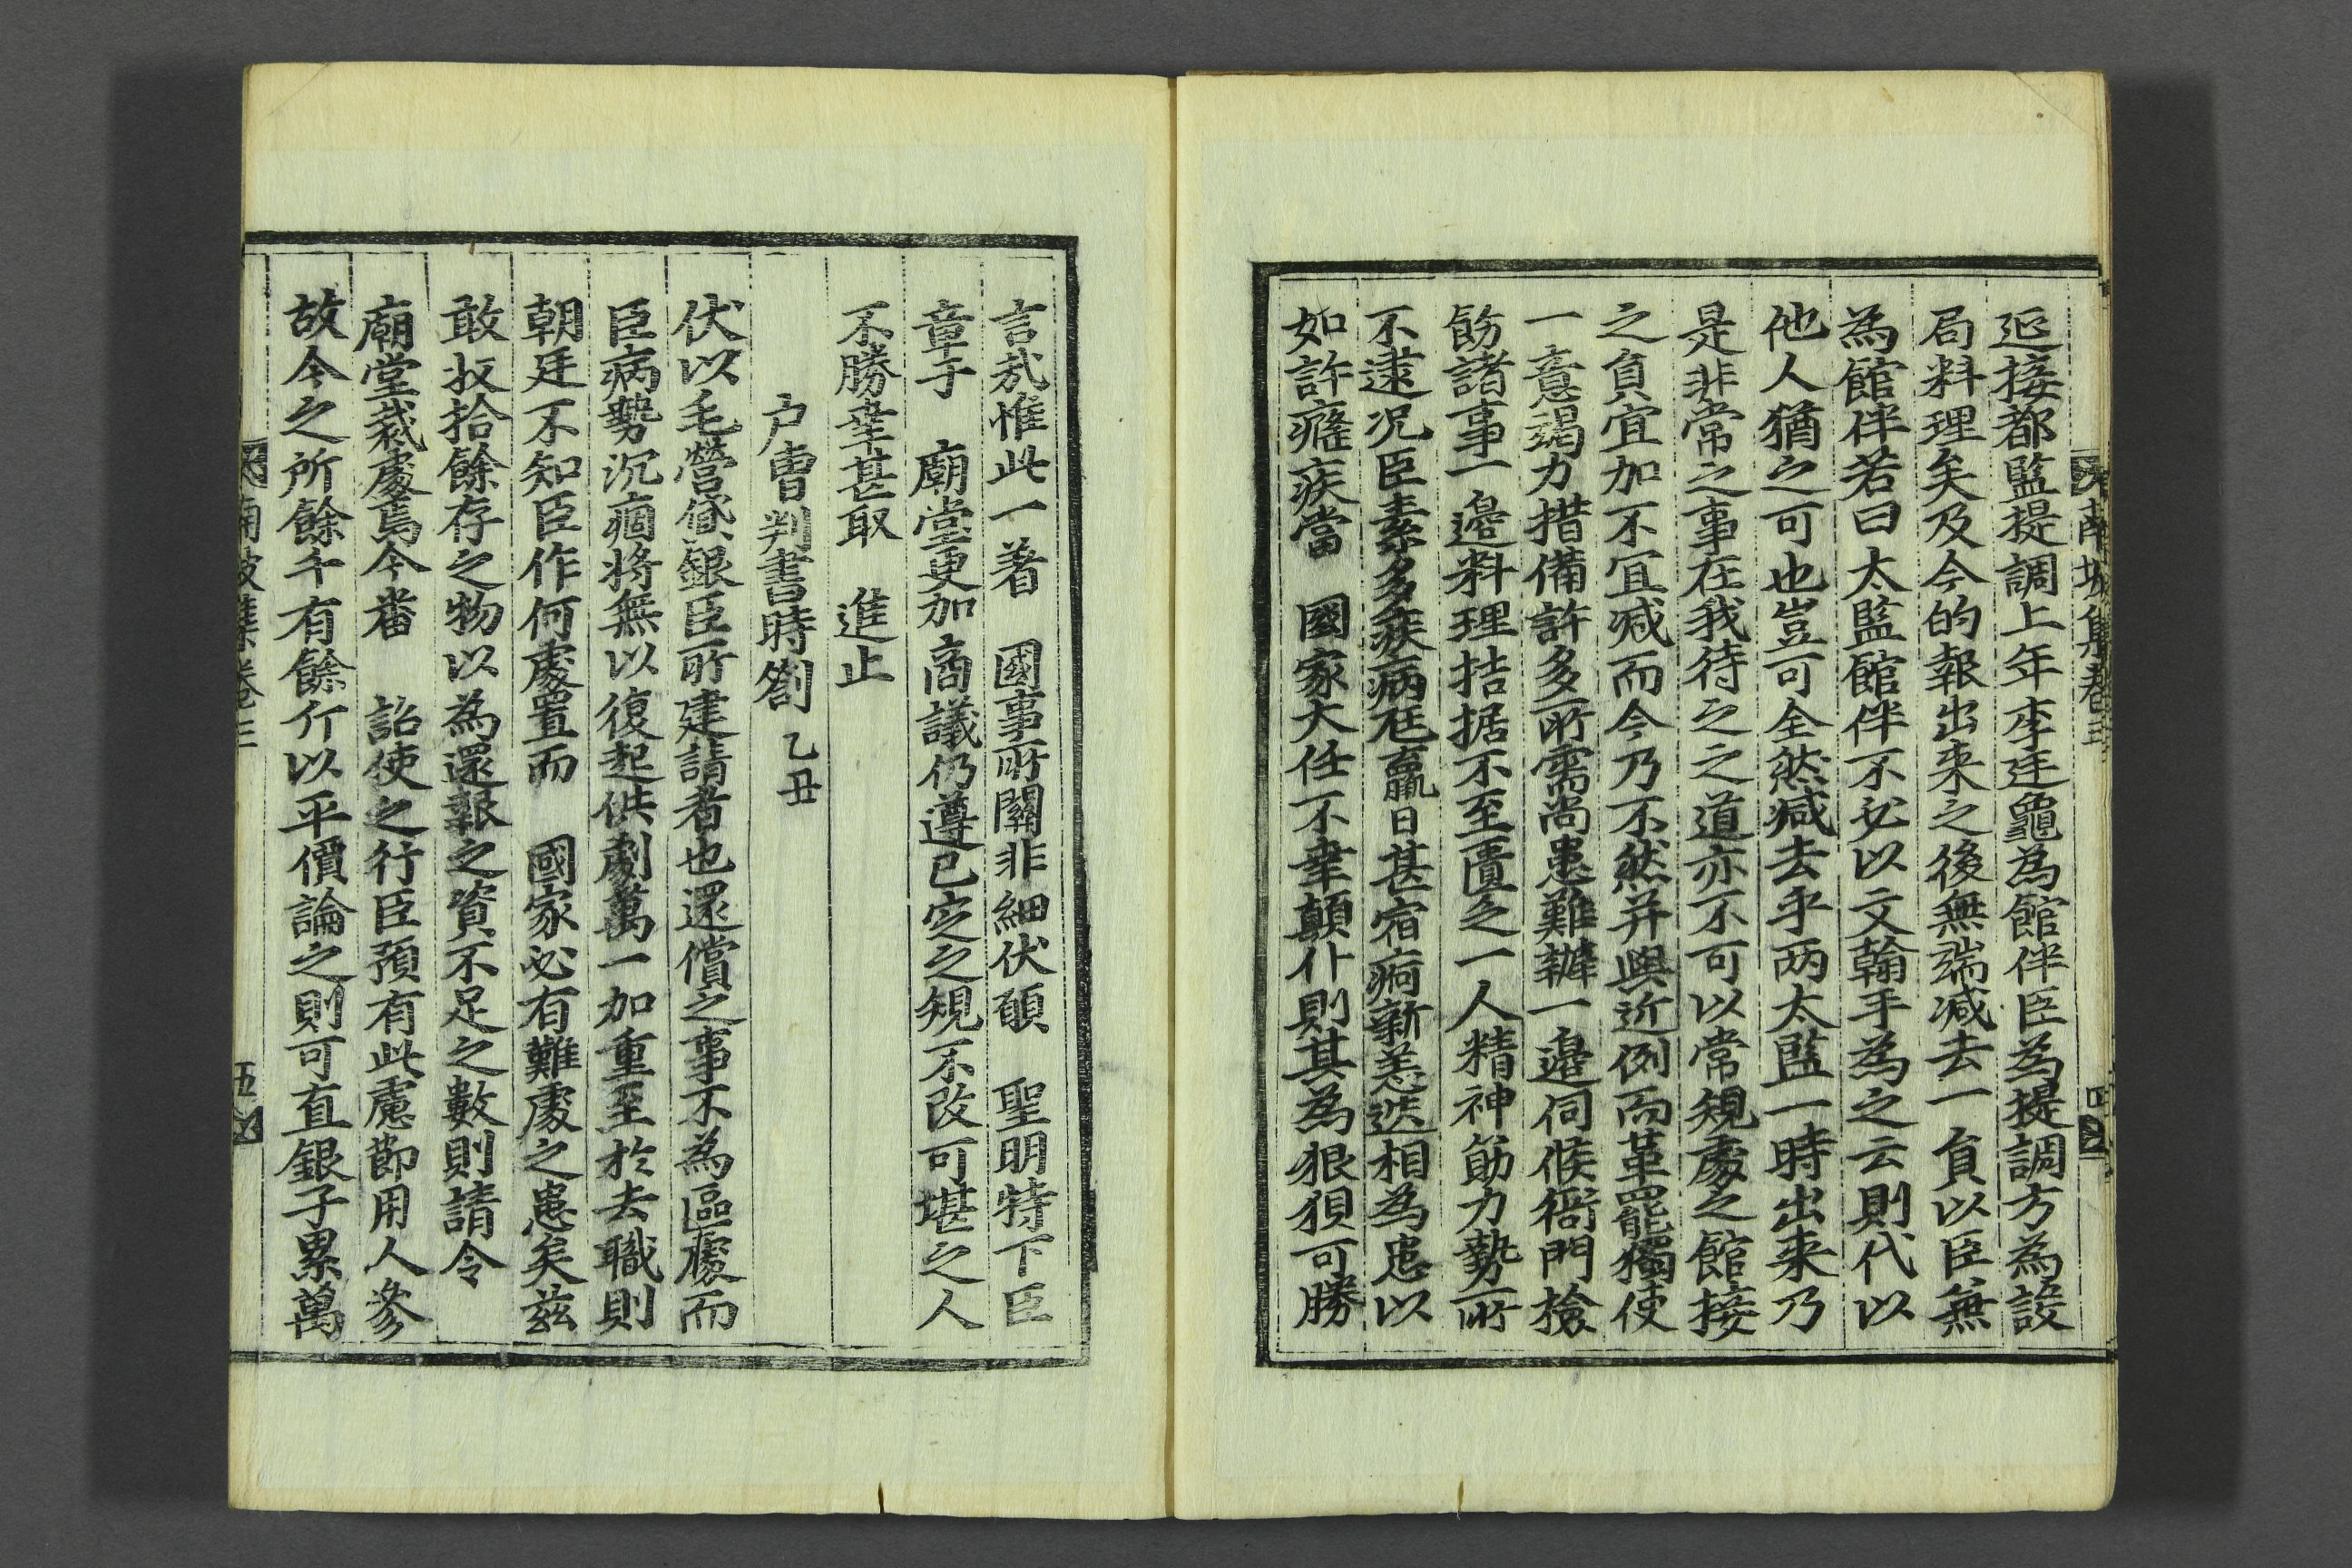 南坡集卷三
四
延接都監提調上年李廷龜為館伴臣為提調方為設
局料理矣及今的報出來之後無端减去一負以臣無
為館伴若曰太監館伴不必以文翰手為之云則代以
他人猶之可也豈可全然减去乎两太監一時出来乃
是非常之事在我待之之道亦不可以常規處之館接
之負宜加不宜减而今乃不然并與近例而革罷獨使
一意竭力措備許多所需尚患難辦一邊伺候衙門撿
飭諸事一邊料理拮据不至匱乏一人精神筋力勢所
不逮况臣素多疾病尫羸日甚宿痾新恙迭相為患以
如許癃疾當 國家大任不幸顛仆則其為狼狽可勝
言㢤惟此一著 國事所關非細伏願 聖明特下臣
章于 廟堂更加商議仍遵已定之規不改可堪之人
不勝幸甚取 進止
户曹判書時劄 乙丑
伏以毛營貸銀臣所建請者也還償之事不為區處而
臣病勢沉痼將無以復起供劇萬一加重至於去職則
朝廷不知臣作何處置而 國家必有難處之患矣茲
敢収拾餘存之物以為還報之資不足之數則請令
廟堂裁處焉今番 詔使之行臣預有此慮節用人參
故今之所餘千有餘斤以平價論之則可直銀子累萬
南坡集卷三
五